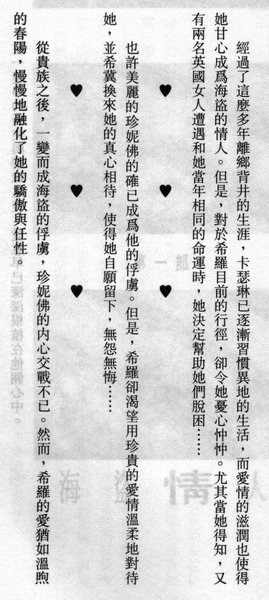 經過了這麼多年離鄉背井的生涯，卡瑟琳已逐漸習慣異地的生活，而愛情的滋潤也使得
她甘心成爲海盜的情人。但是，對於希羅目前的行徑，卻令她憂心忡忡。尤其當她得知，又
有兩名英國女人遭遇和她當年相同的命運時，她決定幫助她們脫困……
♥ ♥ ♥
也許美麗的珍妮佛的確已成爲他的俘虜。但是，希羅卻渴望用珍貴的愛情溫柔地對待
她，並希冀換來她的真心相待，使得她自願留下，無怨無悔……
♥ ♥ ♥
從貴族之後，一變而成海盜的俘虜，珍妮佛的內心交戰不已。然而，希羅的愛猶如溫煦
的春陽，慢慢地融化了她的驕傲與任性。
海盜情人
第一部